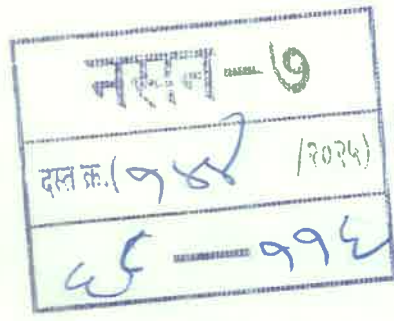 नसन-७
दस्त क्र.(१४४ /२०२५)
६६ — ११६